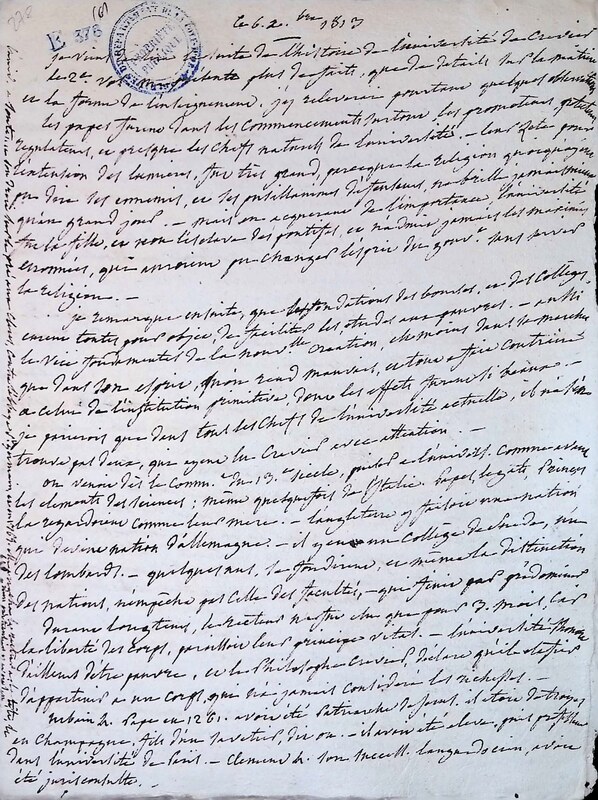 272
E 376 (6)
le 6. 2. bre 1813
je viens de l'histoire de l'université de Crevier
le 2e. vol. plus de faits, que de details sur la matiere
et la forme de l'enseignement. j'y releverai pourtant quelques observations
les papes furent dans les commencements surtout, les promoteurs,
regulateurs, et presque les chefs naturels de l'université. — leur zele pour
l'extension des lumieres, fut très grand, parceque la religion quoiqu'ayent
pu dire ses ennemis, et ses pusillanimes defenseurs, ne brille jamais mieux
qu'au grand jour. — mais en acquerant de l'importance, l'université
fut la fille, et non l'esclave des pontifes, et n'admit jamais les maximes
erronnées, qui auroient pu changer l'esprit du gouvt. sans servir
la religion. —
je remarque ensuite, que les fondations des bourses, et des colleges,
eurent toutes pour objet, de faciliter les études aux pauvres. — aussi
le vice fondamental de la nouvelle creation, est moins dans sa marche
que dans son esprit, qu'on rend mauvais, et tout a fait contraire
a celui de l'institution primitive, dont les effets furent si beaux. —
je parierois que dans tous les chefs de l'université actuelle, il ne s'en
trouve pas deux, qui ayent lu Crevier avec attention. —
on venoit dès le commt. du 13.e siecle, puiser a l'univers. comme
les elements des sciences; même quelquefois de l'Italie. Papes, legats, Princes
la regardoient comme leur mere. — l'angleterre y faisoit une nation
qui devint nation d'allemagne. — il y eut un College de Suede, un
des lombards. — quelques uns, se fondirent, et même la distinction
des nations, n'empêcha pas celle des facultés, — qui finit par prédominer
Durant longtems, le recteur ne fut elu que pour 3. mois, car
la liberté des corps, paroissoit leur principe vital. — l'université s'honore
d'ailleurs d'être pauvre, et le Philosophe Crevier, declare qu'il
d'appartenir a un corps, que n'a jamais consideré les richesses. —
urbain 4. Pape en 1261. avoit été Patriarche de Jerusal. il étoit de troyes
en Champagne, fils d'un savetier, dit on. — il avoit été eleve, puis professeur
dans l'université de Paris. — Clement 4. son success. languedocien, avoit
été jurisconsulte. —